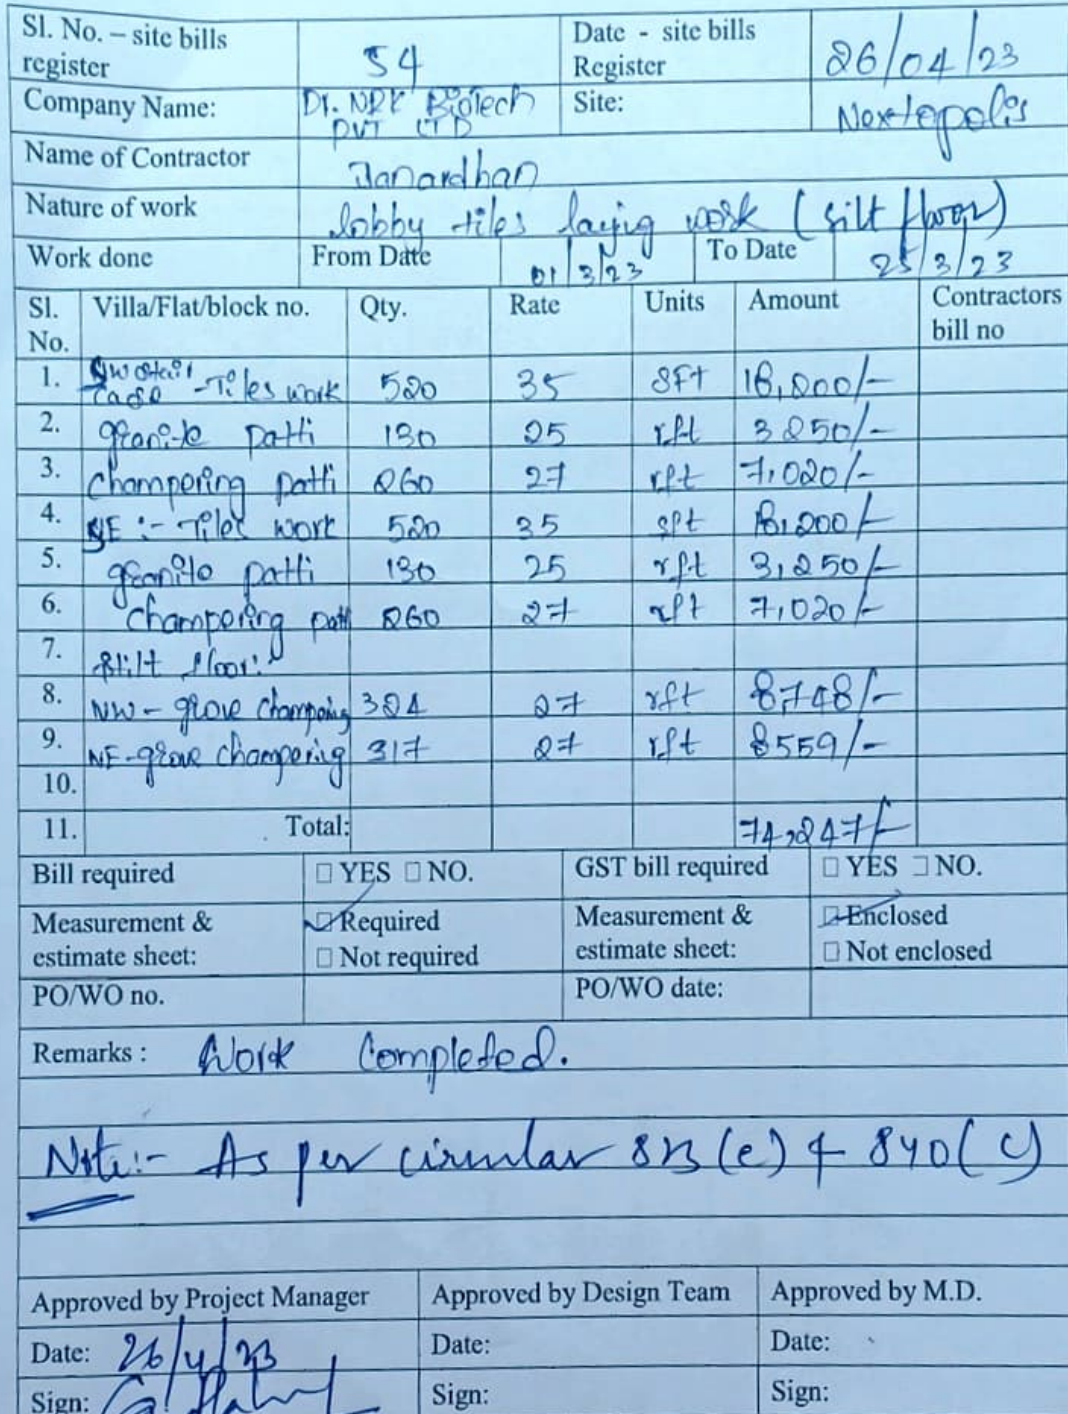 Sl. No. – site bills register 54 Date - site bills Register 26/04/23
Company Name: Dr. NRK Biotech PVT LTD Site: Nextopolis
Name of Contractor Janardhan
Nature of work lobby tiles layig work (silt floor)
Work done From Date 01/3/23 To Date 25/3/23
Sl. No. Villa/Flat/block no. Qty. Rate Units Amount Contractors bill no
1. SW stair case - Tiles work 520 35 SFt 18,200/-
2. granite patti 130 25 rft 3250/-
3. champering patti 260 27 rft 7,020/-
4. NE :- Tiles work 520 35 sft 18,200/-
5. granite patti 130 25 rft 3,250/-
6. champering patti 260 27 rft 7,020/-
7. Stilt floor:
8. NW - grove champering 324 27 rft 8,748/-
9. NE - grove champering 317 27 rft 8559/-
10.
11. Total: 74,247/-
Bill required □ YES □ NO. GST bill required □ YES □ NO.
Measurement & estimate sheet: □ Required Measurement & estimate sheet: □ Enclosed
□ Not required □ Not enclosed
PO/WO no. PO/WO date:
Remarks : Work Completed.
Note:- As per circular 823 (e) & 840 (c)
Approved by Project Manager Approved by Design Team Approved by M.D.
Date: 26/4/23 Date: Date:
Sign: Sign: Sign: